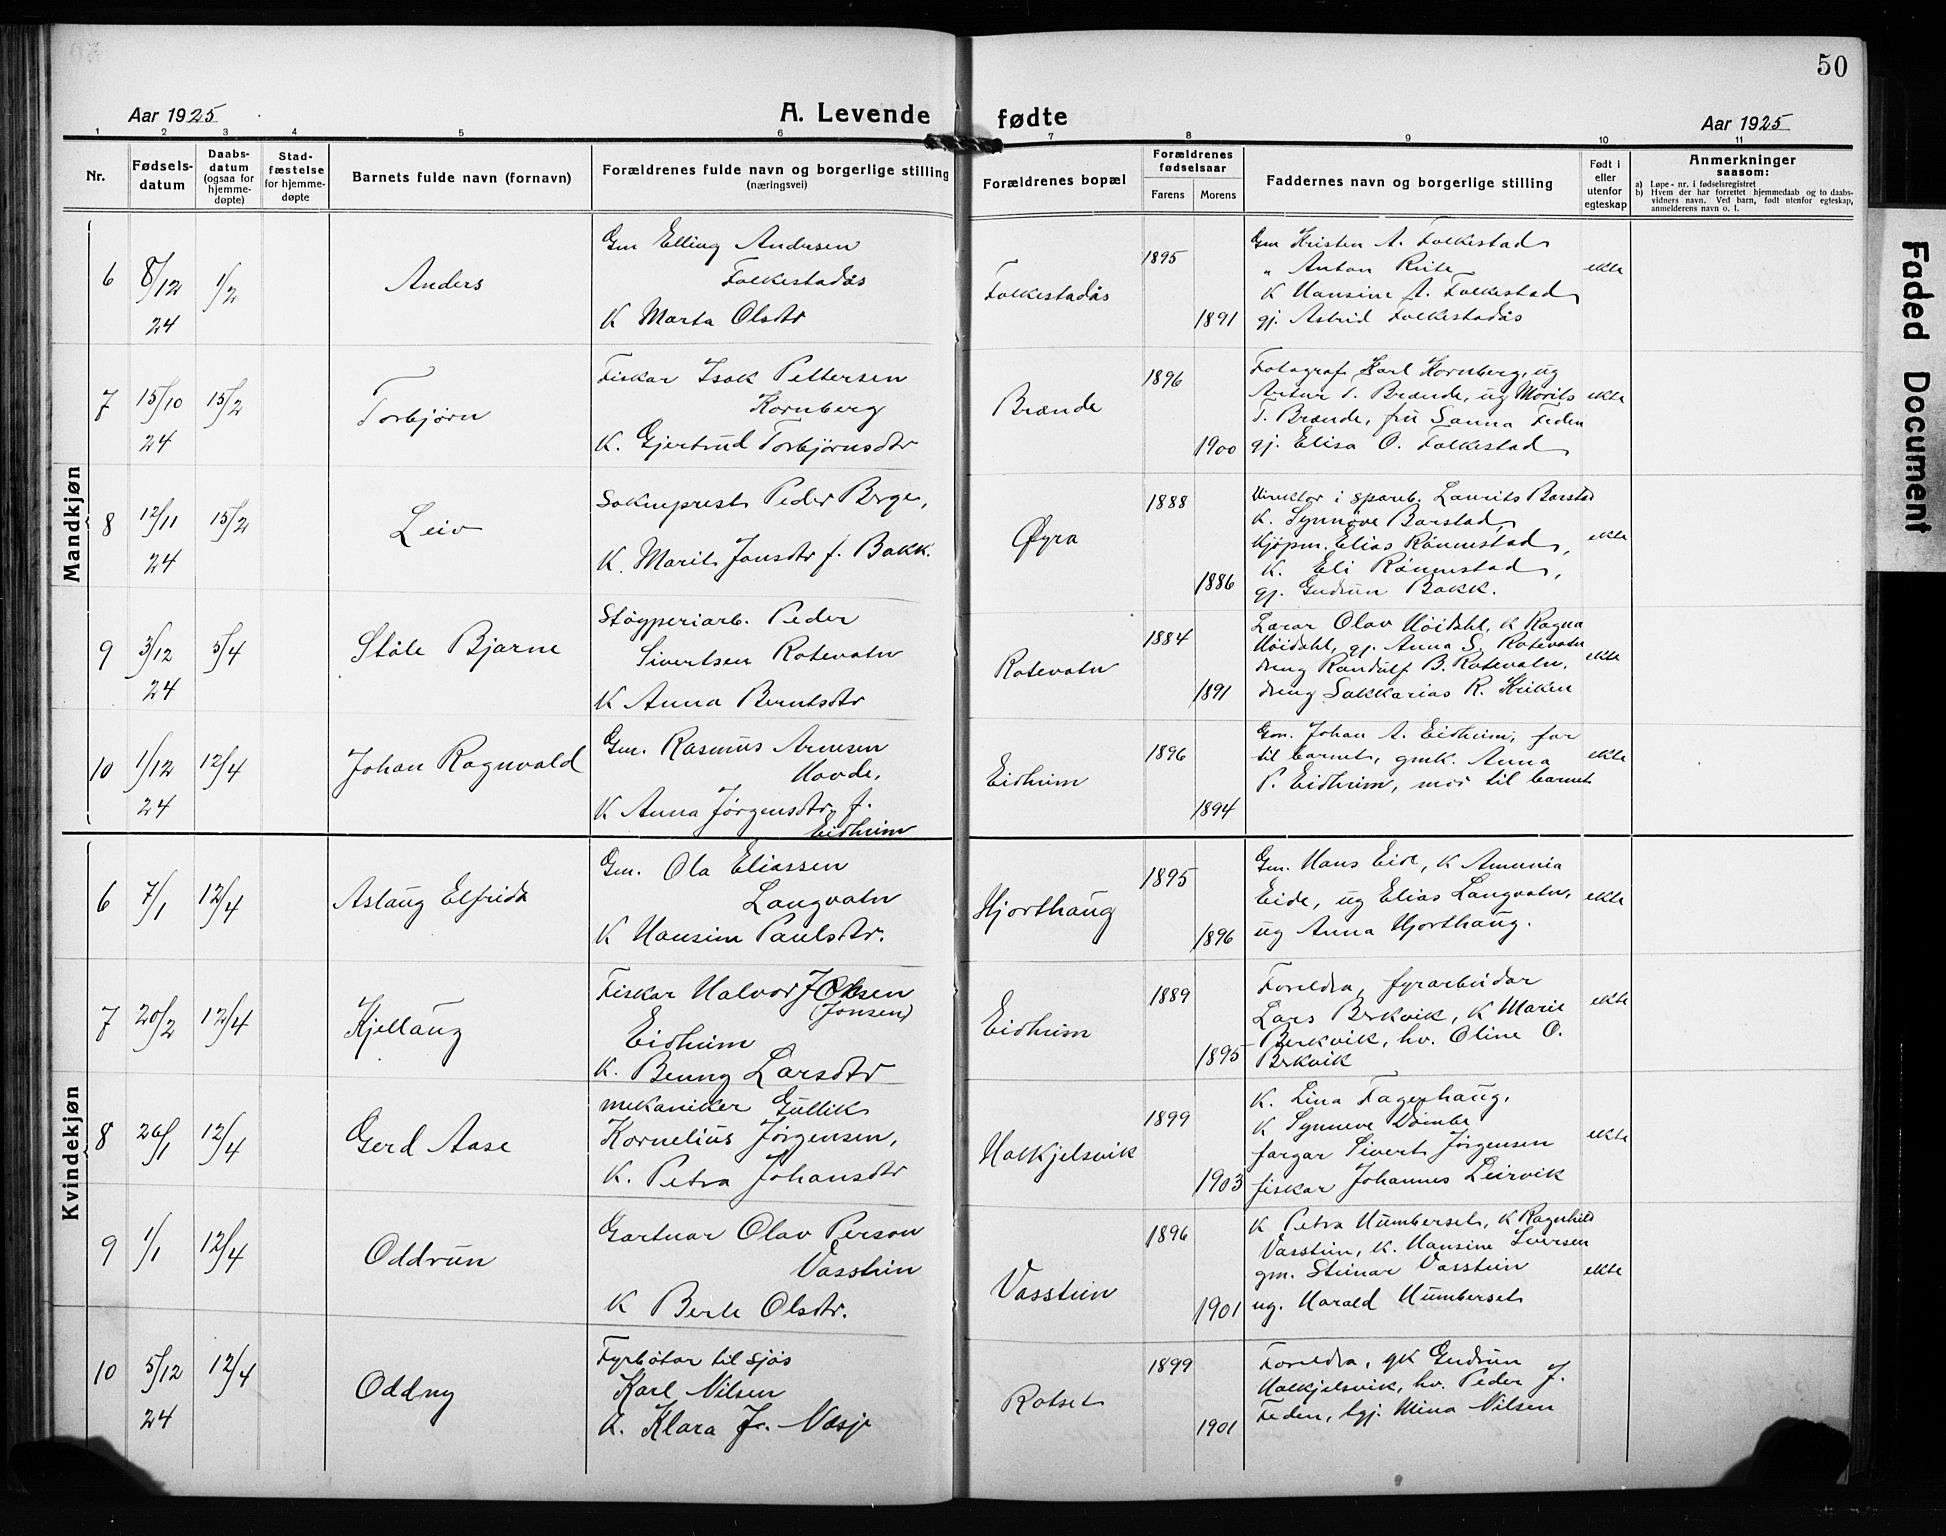 50
Aar 1925
A. Levende fødte
Aar 1925
1 2 3 4 5 6 7 8 9 10 11
Nr.
Fødsels-
datum
Daabs-
datum
(ogsaa for
hjemme-
døpte)
Stad-
fæstelse
for hjemme-
døpte
Barnets fulde navn (fornavn)
Forældrenes fulde navn og borgerlige stilling
(næringsvei)
Forældrenes bopæl
Forældrenes
fødselsaar
Farens Morens
Faddernes navn og borgerlige stilling
Født i
eller
utenfor
egteskap
Anmerkninger
saasom:
a) Løpe-nr. i fødselsregistret
b) Hvem der har forrettet hjemmedaab og to daabs-
vidners navn. Ved barn, født utenfor egteskap,
anmelderens navn o. l.
Faded Document
Mandkjøn
6 8/12 24 1/2 Anders
Gm Elling Andersen
Folkestadås
K Marta Olsdtr
Folkestadås
1895 1891
Gm Kristen A. Folkestad
" Anton Rute
K Hansine A. Folkestad
gj. Astrid Folkestadås
ekte
7 15/10 24 15/2 Torbjørn
Fiskar Isak Pettersen
Kornberg
K. Gjertrud Torbjørnsdtr
Brænde
1896 1900
Fotograf Karl Kornberg, ug
Artur T. Brænde, ug Morits
T. Brænde, fru Sanna Feden
gj. Elisa O. Folkestad
ekte
8 12/11 24 15/2 Leiv
Sokneprest Peder Berge,
K. Marit Jonsdtr f. Bakk.
Øyra
1888 1886
Direktør i spareb. Laurits Barstad
K. Synnøve Barstad,
Kjøpm. Elias Rønnestad,
K. Eli Rønnestad,
gj. Gudrun Bakk.
ekte
9 3/12 24 5/4 Ståle Bjarne
Støyperiarb. Peder
Sivertsen Rotevatn
K Anna Berntsdtr
Rotevatn
1884 1891
Lærar Olav Høidahl, K Ragna
Høidahl, gj. Anna S. Rotevatn
dreng Randulf B. Rotevatn,
dreng Sakkarias R. Kriken
ekte
10 1/12 24 12/4 Johan Ragnvald
Gm. Rasmus Arnesen
Hovde,
K Anna Jørgensdtr f.
Eidheim
Eidheim
1896 1894
Gm. Johan A. Eidheim, far
til barnet, gmk. Anna
P. Eidheim, mor til barnet
ekte
Kvindekjøn
6 7/1 12/4 Aslaug Elfrida
Gm. Ola Eliassen
Langvatn
K Hansine Paulsdtr.
Hjorthaug
1895 1896
Gm. Hans Eide, K Ammnia
Eide, ug Elias Langvatn,
ug Anna Hjorthaug.
ekte
7 20/2 12/4 Kjellaug
Fiskar Halvor Johnsen
(Jonsen)
Eidheim
K. Benny Larsdtr
Eidheim
1889 1895
Foreldra, fyrarbeidar
Lars Berkvik, K Marie
Berkvik, hv. Oline O.
Berkvik
ekte
8 26/1 12/4 Gerd Aase
mekaniker Gullik
Kornelius Jørgensen,
K. Petra Johansdtr
Halkjelsvik
1899 1903
K. Lina Fagerhaug,
K Synneve Dømbe
fargar Sivert Jørgensen
fiskar Johannes Leirvik
ekte
9 1/1 12/4 Oddrun
Gartnar Olav Person
Vasstein
K Berte Olsdtr.
Vasstein
1896 1901
K Petra Humberset, K Ragnhild
Vasstein, K. Hansine Iversen
gm. Steinar Vasstein
ug. Harald Humberset
ekte
10 5/12 24 12/4 Oddny
Fyrbøtar til sjøs
Karl Nilsen
K. Klara J. Næsje
Rotset
1899 1901
Foreldra, gk Gudrun
Halkjelsvik, hv. Peder J.
Feden, hgj. Mina Nilsen